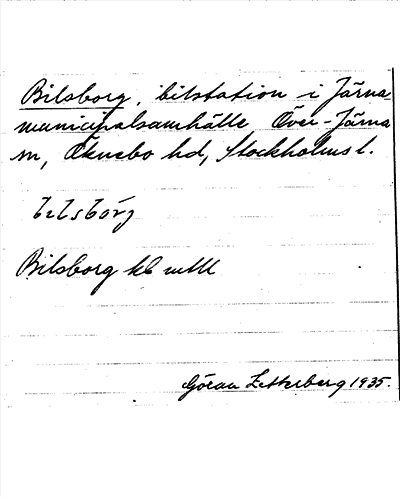 Bilsborg, bilstation i Järna
municipalsamhälle Över-Järna
sn, Öknebo hd, Stockholms l.
Bilsborg
Göran Zetterberg 1935.